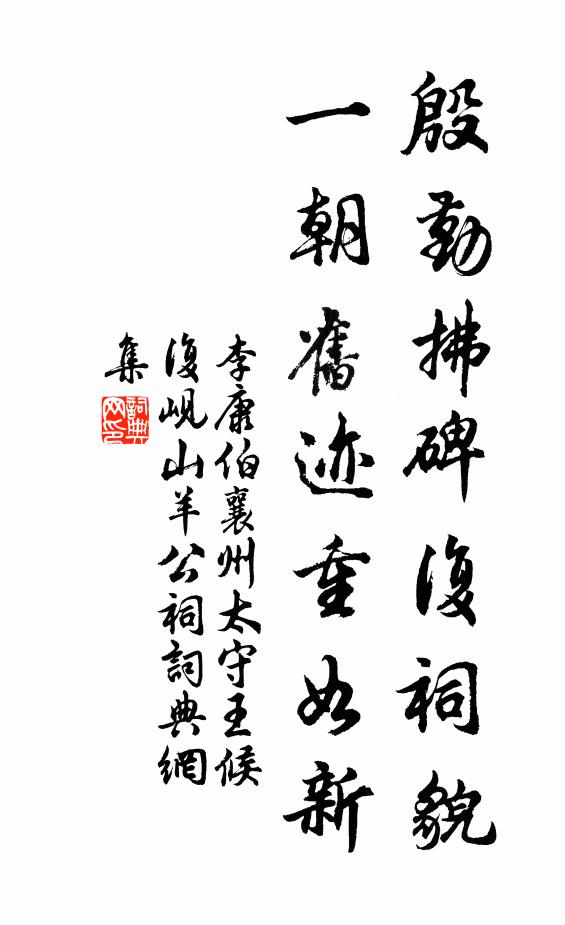 殷勤拂碑復祠貌
一朝舊迹重如新
李康伯襄州太守王候
復峴山羊公祠詞典網
集
詞典
网印